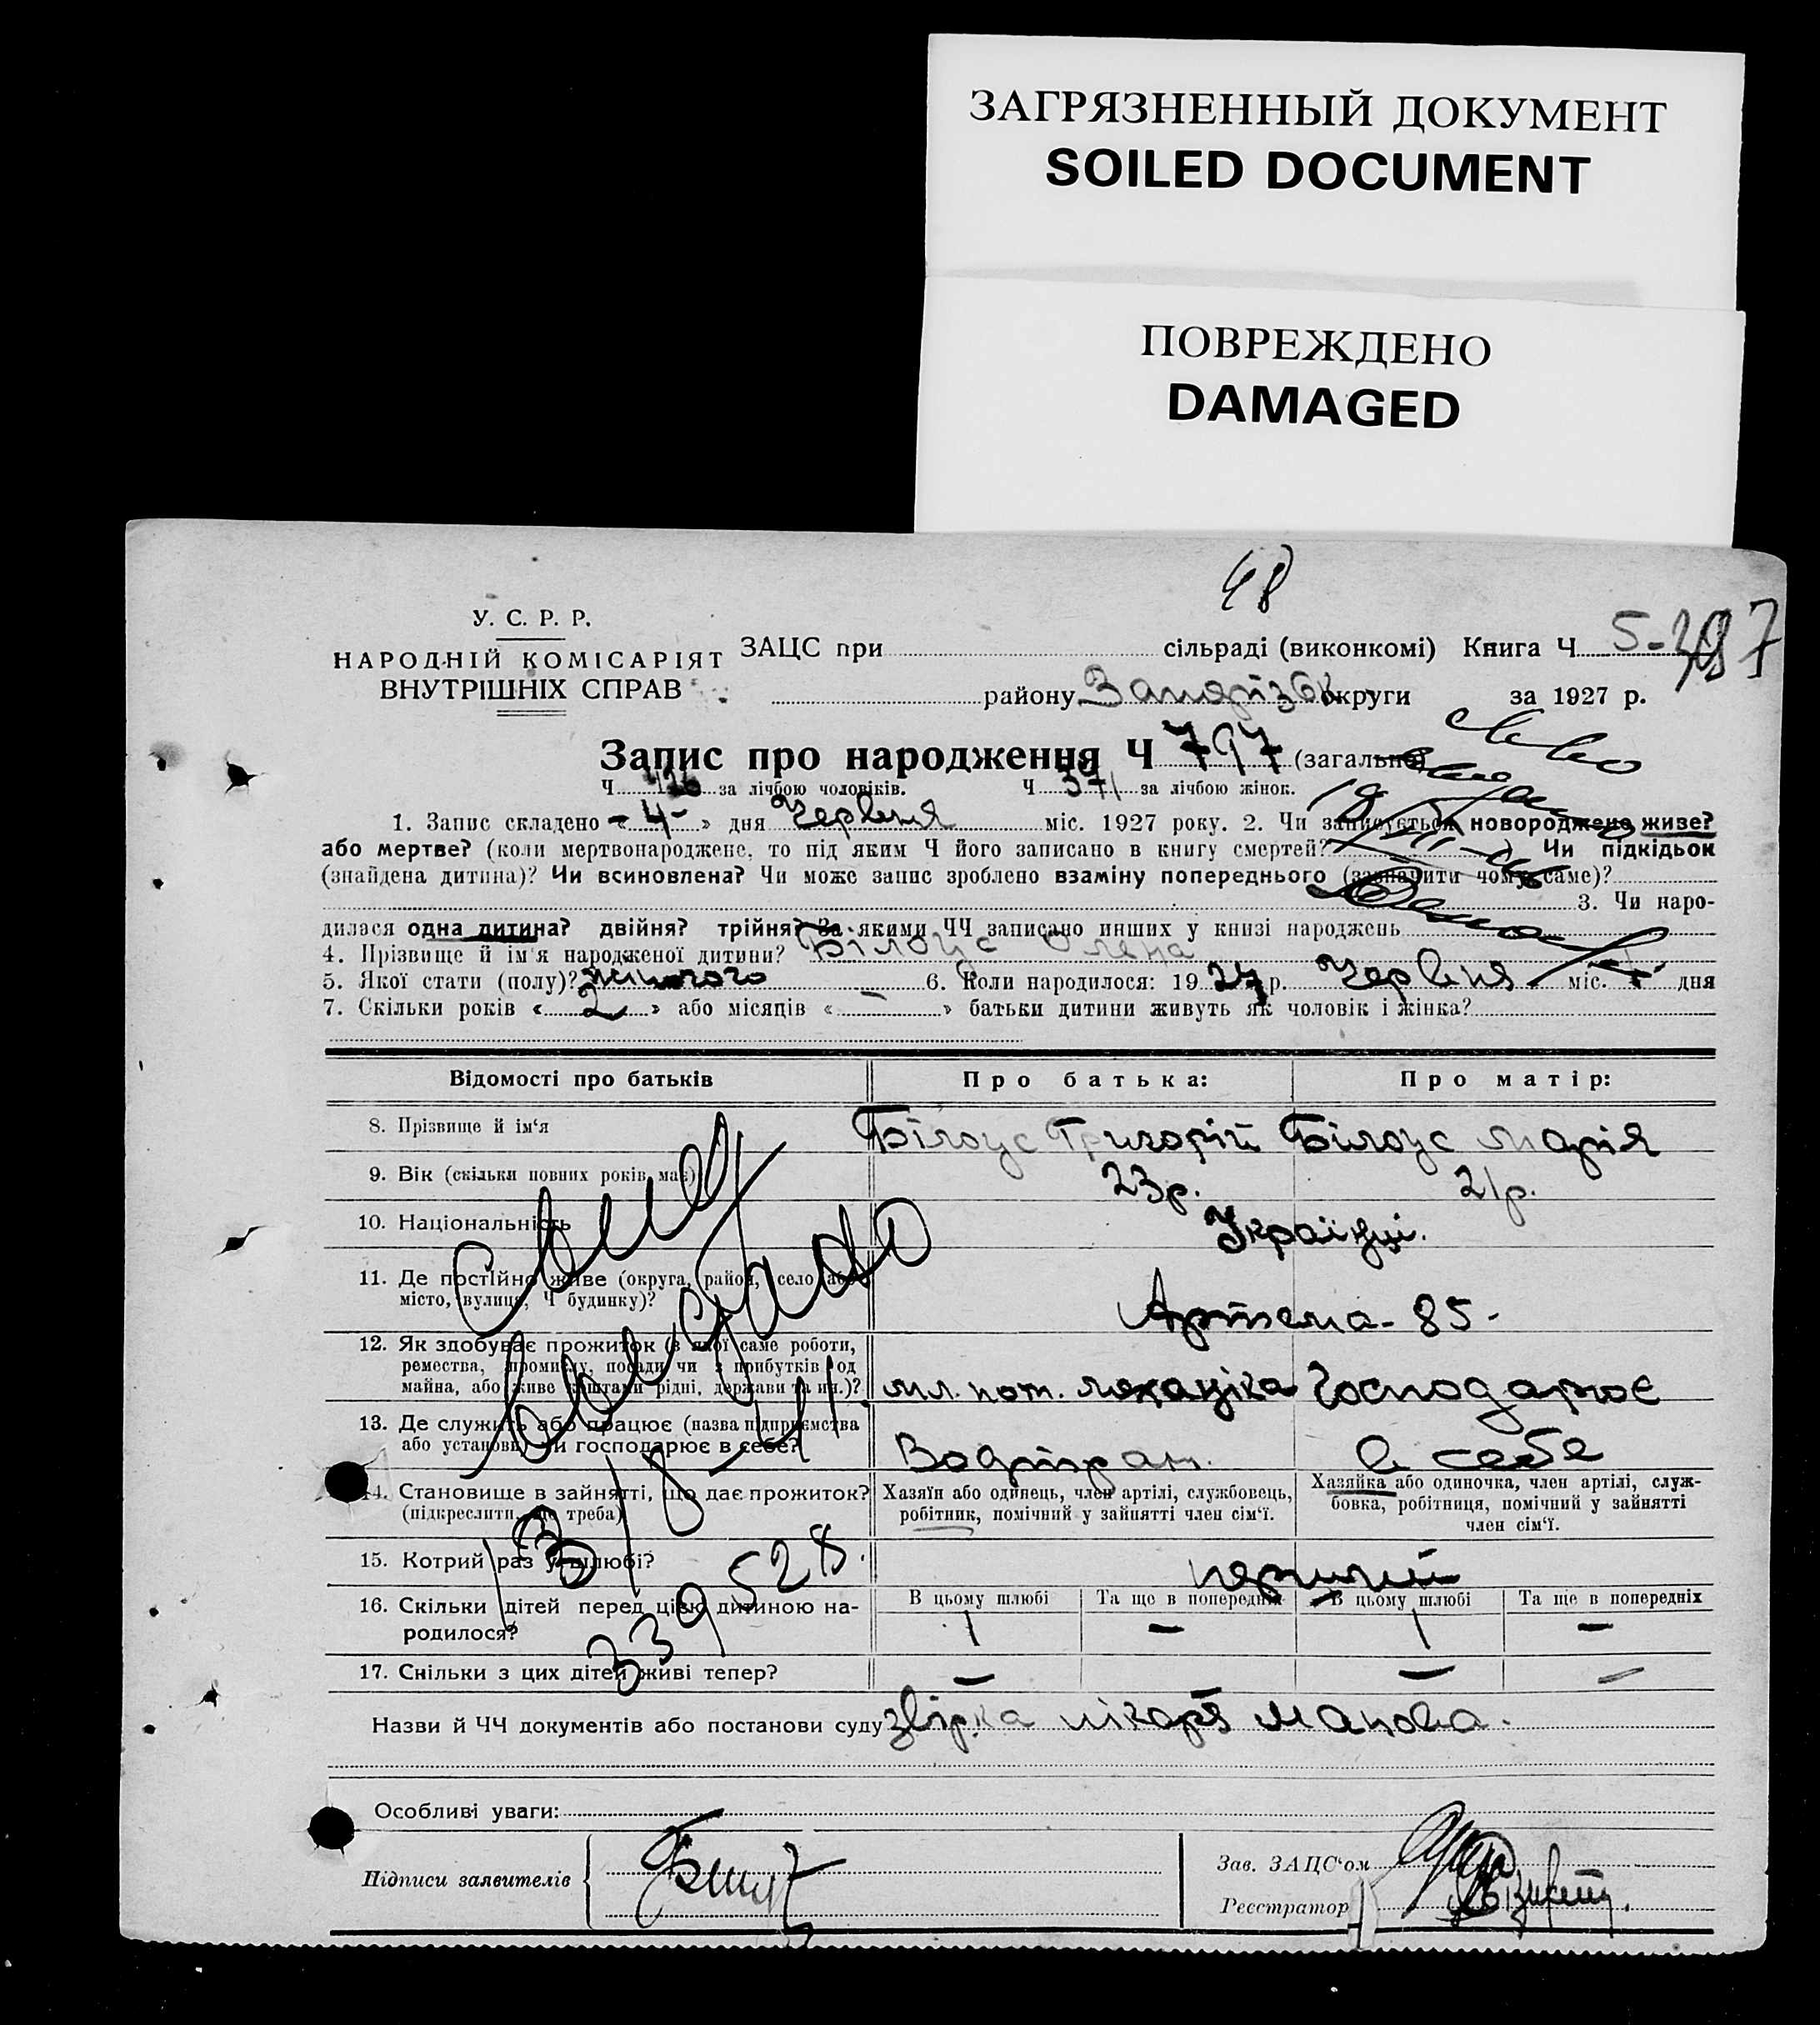 ЗАГРЯЗНЕННЫЙ ДОКУМЕНТ
SOILED DOCUMENT
ПОВРЕЖДЕНО
DAMAGED
48
У. С. Р. Р.
НАРОДНІЙ КОМІСАРІЯТ
ВНУТРІШНІХ СПРАВ
ЗАЦС при сільраді (виконкомі) Книга Ч. 5-
району Запоріз округи за 1927 р.
Запис про народження Ч 797 (загальне)
Ч. 426 за лічбою чоловіків. Ч. 371 за лічбою жінок.
1. Запис складено «-4-» дня Червня міс. 1927 року. 2. Чи записується новороджене живе?
або мертве? (коли мертвонароджене, то під яким Ч його записано в книгу смертей? ) Чи підкідьок
(знайдена дитина)? Чи всиновлена? Чи може запис зроблено взаміну попереднього (зазначити чому саме)?
3. Чи наро-
дилася одна дитина? двійня? трійня? За якими ЧЧ записано инших у книзі народжень
4. Прізвище й ім'я народженої дитини? Білоус Олена
5. Якої статі (полу)? жіночого 6. Коли народилося: 1927 р. Червня міс. дня
7. Скільки років «2» або місяців «-» батьки дитини живуть як чоловік і жінка?
Відомості про батьків Про батька: Про матір:
8. Прізвище й ім'я Білоус Григорій Білоус Марія
9. Вік (скільки повних років має) 23р. 21р.
10. Національність Українці.
11. Де постійно живе (округа, район, село або
місто, вулиця, Ч будинку)? Артема-85-
12. Як здобуває прожиток (з якої саме роботи,
ремества, промислу, посади чи з прибутків од
майна, або живе коштами рідні, держави та ин.)? мл. пом. механіка Господарює
13. Де служить або працює (назва підприємства
або установи) чи господарює в себе? Водтран. в себе
14. Становище в зайнятті, що дає прожиток?
(підкреслити, що треба)
Хазяїн або одинець, член артілі, службовець,
робітник, помічний у зайнятті член сім'ї.
Хазяйка або одиночка, член артілі, служ-
бовка, робітниця, помічний у зайнятті
член сім'ї.
15. Котрий раз у шлюбі? перший
16. Скільки дітей перед цією дитиною на-
родилося?
В цьому шлюбі Та ще в попередніх В цьому шлюбі Та ще в попередніх
1 - 1 -
17. Скільки з цих дітей живі тепер? - - -
339528.
Назви й ЧЧ документів або постанови суду звірка лікаря
Особливі уваги:
Підписи заявителів
Зав. ЗАЦС'ом
Реєстратор